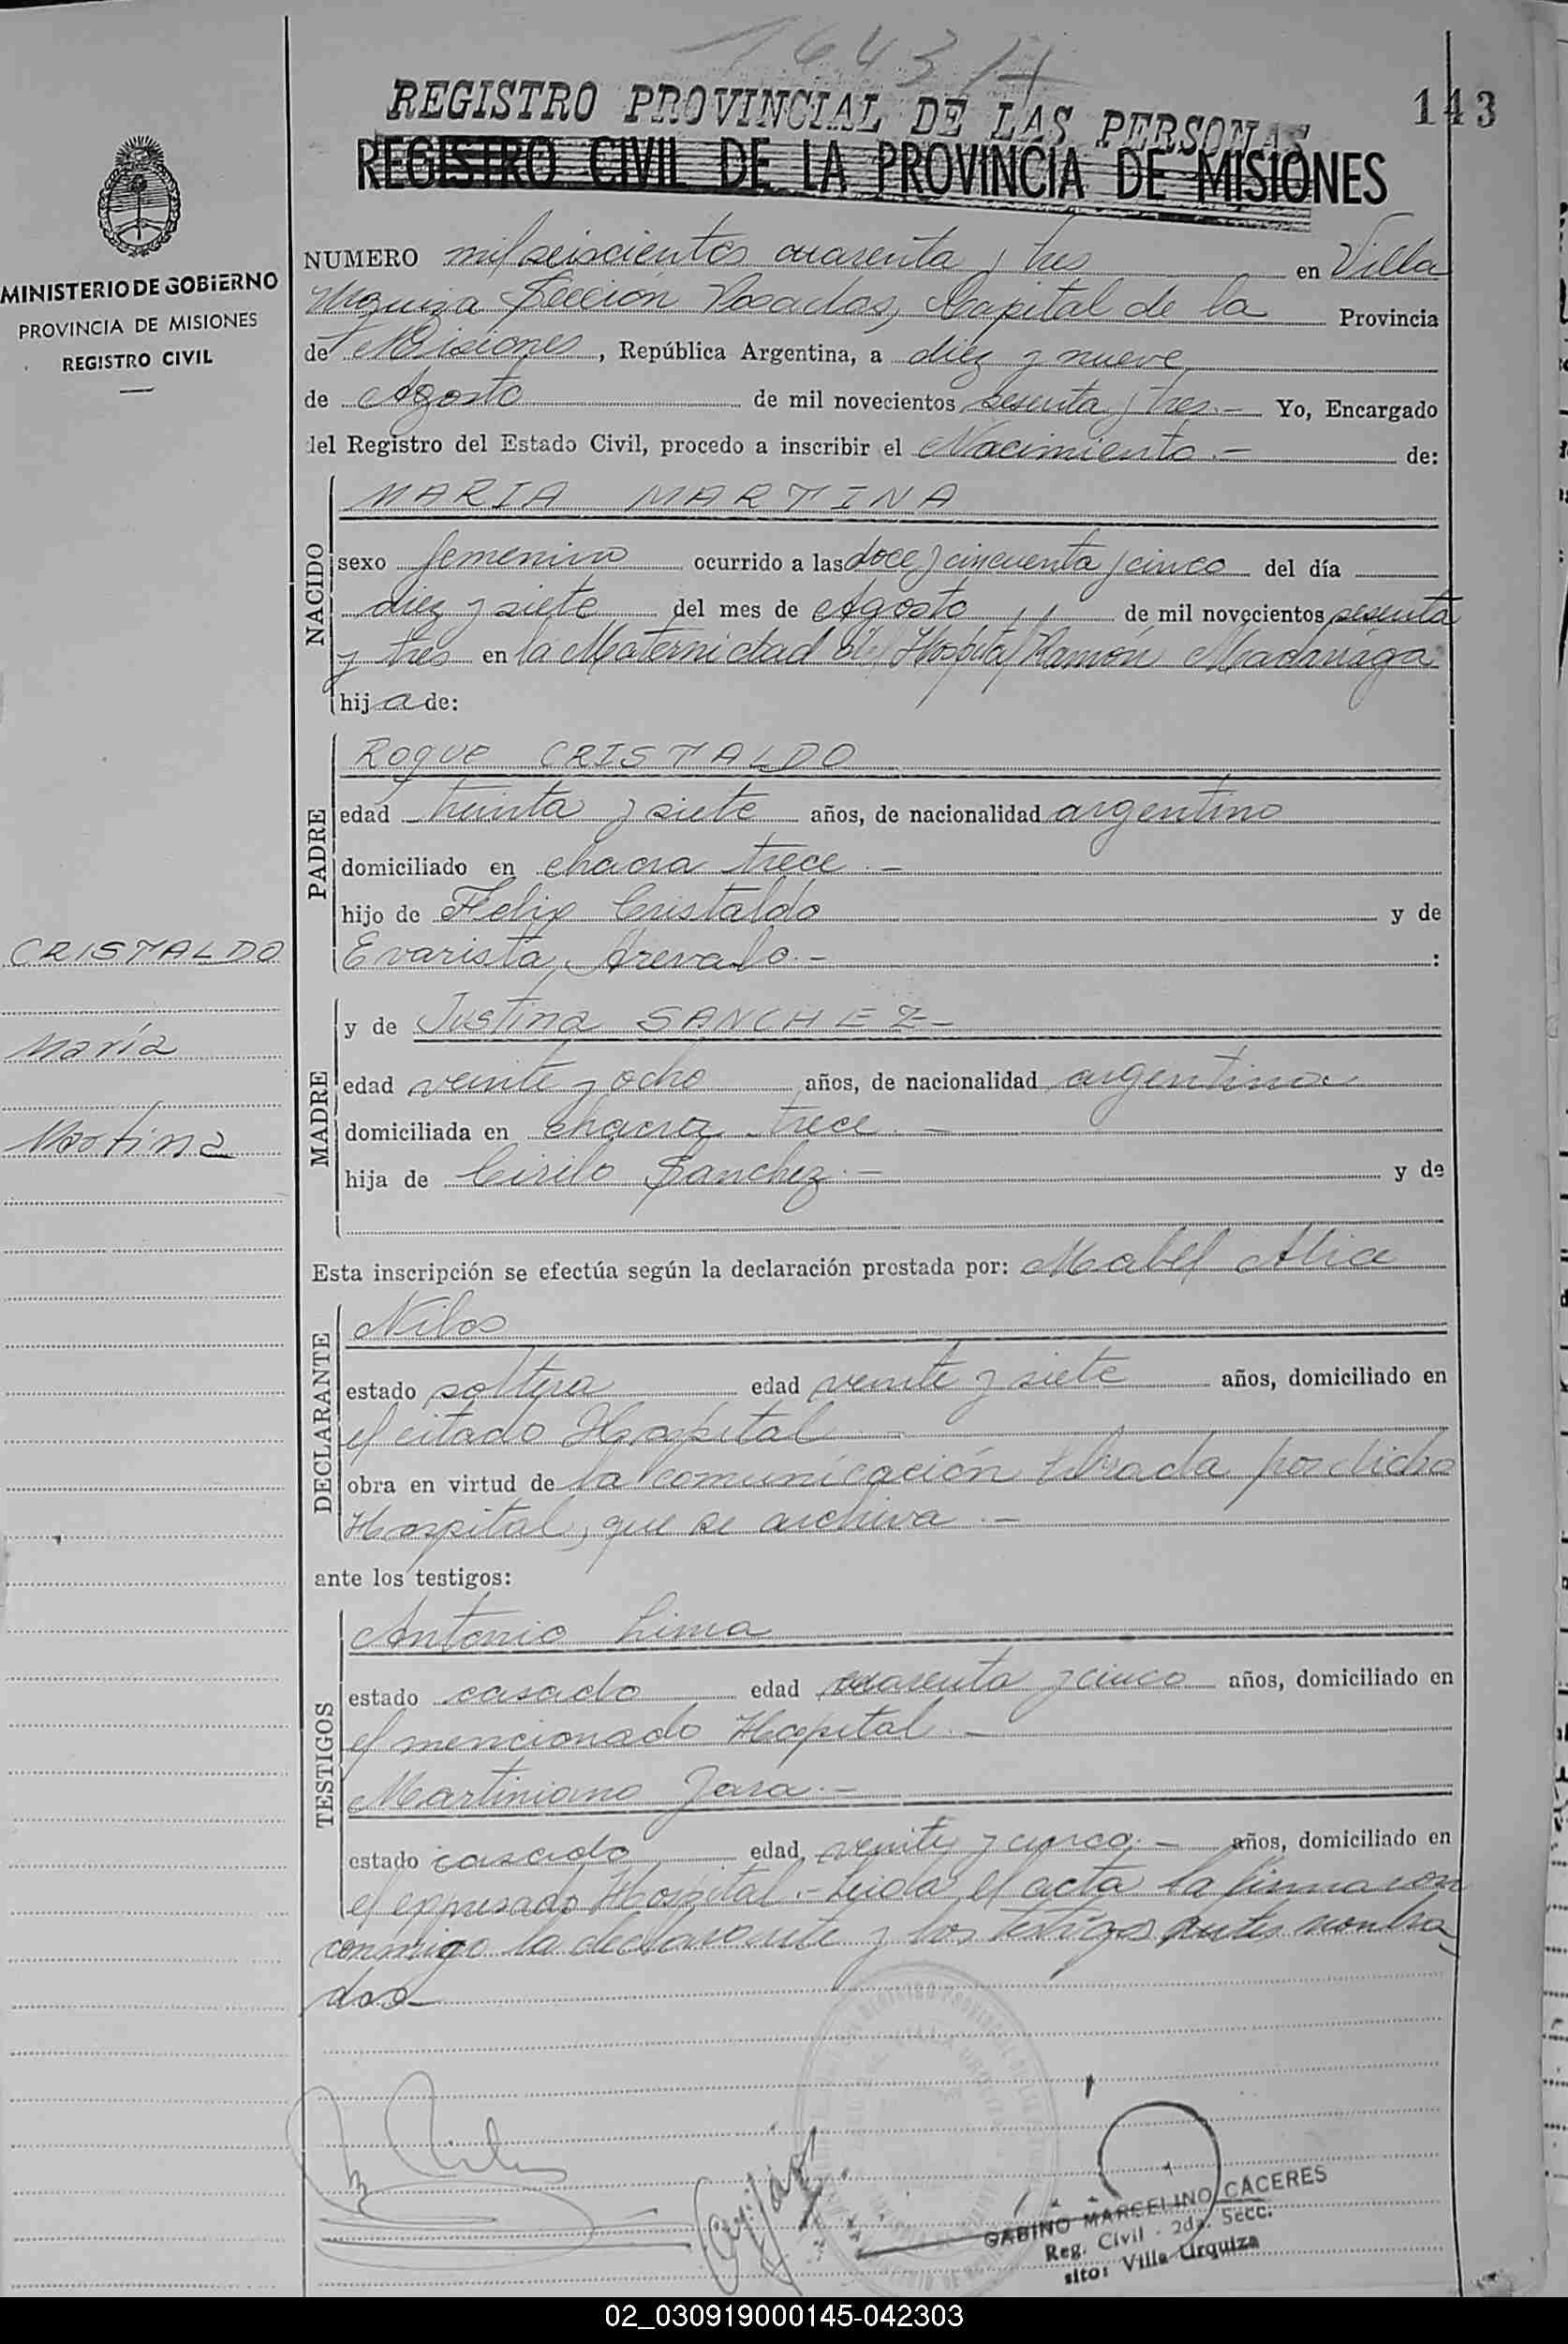 1643/1
143
REGISTRO PROVINCIAL DE LAS PERSONAS
REGISTRO CIVIL DE LA PROVINCIA DE MISIONES
MINISTERIO DE GOBIERNO
PROVINCIA DE MISIONES
REGISTRO CIVIL
NUMERO mil seiscientos cuarenta y tres en Villa
Urquiza Sección Posadas, Capital de la Provincia
de Misiones, República Argentina, a diez y nueve
de Agosto de mil novecientos sesenta y tres.- Yo, Encargado
del Registro del Estado Civil, procedo a inscribir el Nacimiento.- de:
NACIDO
MARIA MARTINA
sexo femenino ocurrido a las doce y cincuenta y cinco del día
diez y siete del mes de Agosto de mil novecientos sesenta
y tres en la Maternidad del Hospital Ramón Madariaga
hij a de:
PADRE
Roque CRISTALDO
edad treinta y siete años, de nacionalidad argentino
domiciliado en chacra trece.-
hijo de Felix Cristaldo y de
Evarista Arevalo.- :
CRISTALDO
María
Martina
MADRE
y de Justina SANCHEZ-
edad veinte y ocho años, de nacionalidad argentina
domiciliada en chacra trece.-
hija de Cirilo Sanchez.- y de
Esta inscripción se efectúa según la declaración prestada por: Mabel Alica
DECLARANTE
Nilos
estado soltera edad veinte y siete años, domiciliado en
el citado Hospital.-
obra en virtud de la comunicación librada por dicho
Hospital, que se archiva.-
ante los testigos:
TESTIGOS
Antonio Lima
estado casado edad cuarenta y cinco años, domiciliado en
el mencionado Hospital.-
Martiniano Jara.-
estado casado edad veinte y cinco.- años, domiciliado en
el expresado Hospital.- Leida el acta la firmaron
conmigo la declarante y los testigos antes nombra
dos-
GABINO MARCELINO CACERES
Reg. Civil - 2da. Secc.
sito: Villa Urquiza
02_030919000145-042303